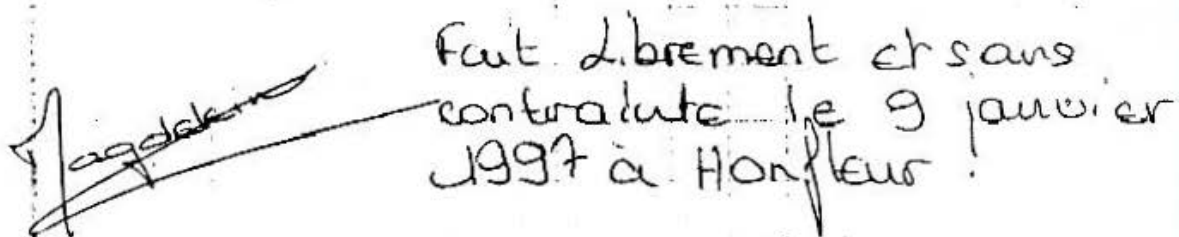 Fait Librement et sans
contrainte le 9 janvier
1997 à Honfleur !